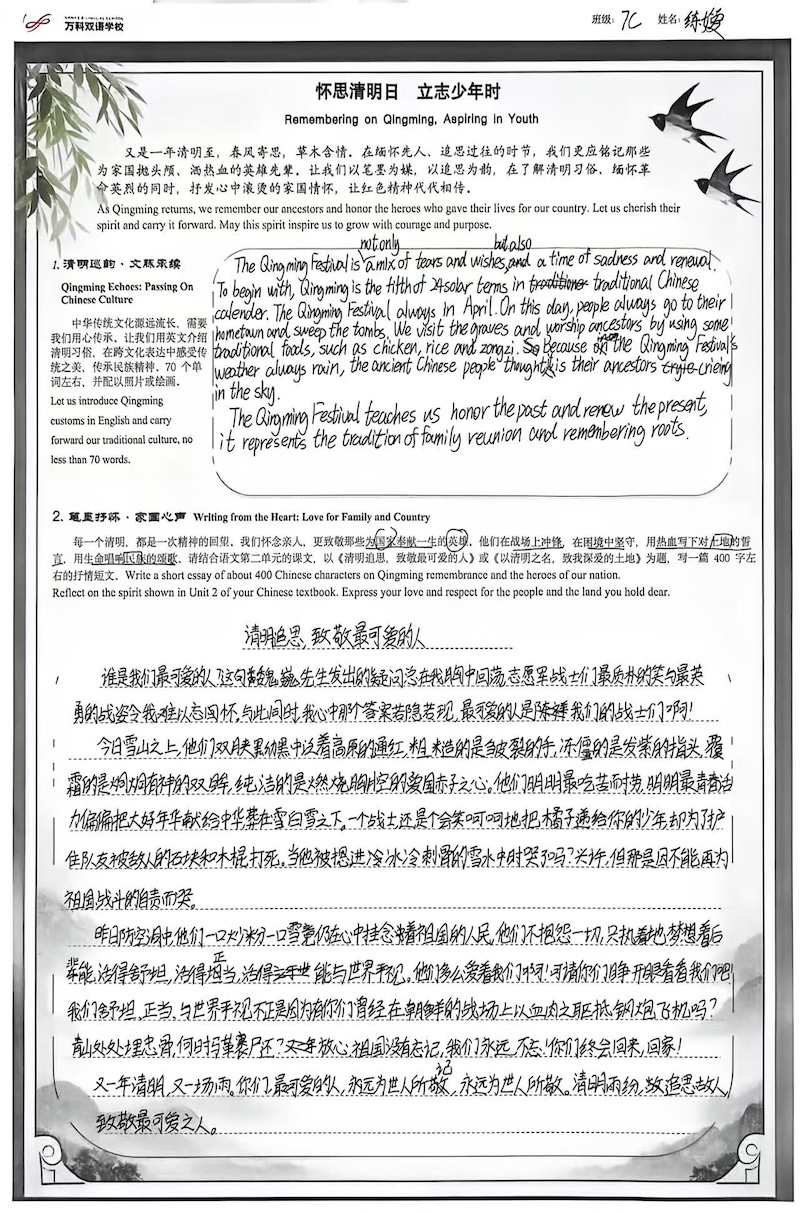 万科双语学校
班级: 7C 姓名: 练嫚
怀思清明日 立志少年时
Remembering on Qingming, Aspiring in Youth
又是一年清明至，春风寄思，草木含情。在缅怀先人、追思过往的时节，我们更应铭记那些
为家国抛头颅、洒热血的英雄先辈。让我们以笔墨为媒，以追思为韵，在了解清明习俗、缅怀革
命英烈的同时，抒发心中滚烫的家国情怀，让红色精神代代相传。
As Qingming returns, we remember our ancestors and honor the heroes who gave their lives for our country. Let us cherish their
spirit and carry it forward. May this spirit inspire us to grow with courage and purpose.
1. 清明巡韵·文脉承续
Qingming Echoes: Passing On
Chinese Culture
中华传统文化源远流长，需要
我们用心传承。让我们用英文介绍
清明习俗，在跨文化表达中感受传
统之美，传承民族精神，70 个单
词左右，并配以照片或绘画。
Let us introduce Qingming
customs in English and carry
forward our traditional culture, no
less than 70 words.
not only but also
The Qingming Festival is a mix of tears and wishes, and a time of sadness and renewal.
To begin with, Qingming is the fifth of 24 solar terms in traditional Chinese
calender. The Qingming Festival always in April. On this day, people always go to their
hometown and sweep the tombs. We visit the graves and worship ancestors by using some
traditional foods, such as chicken, rice and zongzi. Because the Qingming Festival's
weather always rain, the ancient Chinese people thought is their ancestors crieing
in the sky.
The Qingming Festival teaches us honor the past and renew the present,
it represents the tradition of family reunion and remembering roots.
2. 笔墨抒怀·家国心声 Writing from the Heart: Love for Family and Country
每一个清明，都是一次精神的回望。我们怀念亲人，更致敬那些为国家奉献一生的英雄。他们在战场上冲锋，在困境中坚守，用热血写下对土地的誓
言，用生命唱响民族的颂歌。请结合语文第二单元的课文，以《清明追思，致敬最可爱的人》或《以清明之名，致我深爱的土地》为题，写一篇 400 字左
右的抒情短文。Write a short essay of about 400 Chinese characters on Qingming remembrance and the heroes of our nation.
Reflect on the spirit shown in Unit 2 of your Chinese textbook. Express your love and respect for the people and the land you hold dear.
清明追思，致敬最可爱的人
谁是我们最可爱的人?这句魏巍先生发出的疑问总在我胸中回荡，志愿军战士们最质朴的笑与最英
勇的战姿令我难以忘回怀。与此同时，我心中那个答案若隐若现，最可爱的人是我们的战士们啊!
今日雪山之上，他们双颊黑幼黑中泛着高原的通红，粗糙的是皲裂的手，冻僵的是发紫的指头，覆
霜的是炯炯有神的双眸，纯洁的是燃烧胸腔的爱国赤子之心。他们明明最吃苦而耐劳，明明最青春活
力偏偏把大好年华献给中华葬在雪白雪之下。一个战士还是个会笑呵呵地把橘子递给你的少年却为了护
住队友被敌人的石块和木棍打死。当他被摁进冷冰冷刺骨的雪水中时哭了吗?兴许，但那是因不能再为
祖国战斗的自责而哭。
昨日防空洞中，他们一口炒粉一口雪竟仍在心中挂念着祖国的人民，他们不抱怨一切，只执着地梦想着后
辈能活得舒坦，活得正当，活得能与世界平视。他们多么爱着我们啊!可请你们睁开眼看看我们吧!
我们舒坦、正当、与世界平视不正是因为有你们曾经在朝鲜的战场上以血肉之躯抵钢炮飞机吗?
青山处处埋忠骨，何时马革裹尸还?放心，祖国没有忘记，我们永远不忘!你们终会回来，回家!
又一年清明，又一场雨。你们，最可爱的人，永远为世人所记，永远为世人所敬。清明雨纷，故追思故人，
致敬最可爱之人。